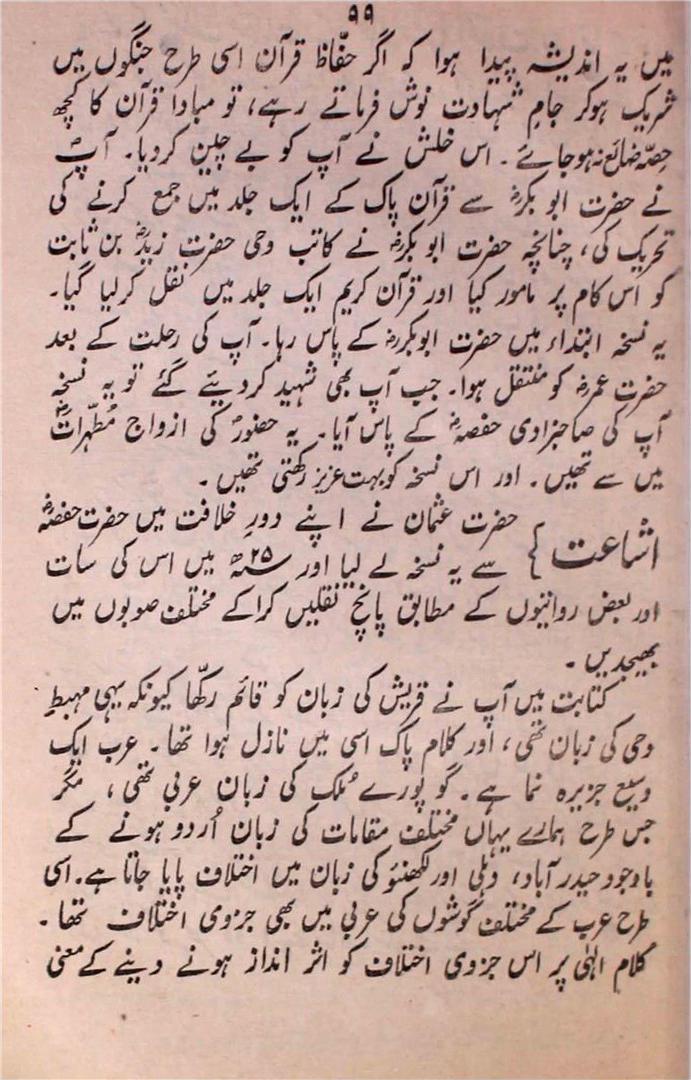 ۹۹
میں یہ اندیشہ پیدا ہوا کہ اگر حفّاظ قرآن اسی طرح جنگوں میں
شریک ہوکر جامِ شہادت نوش فرماتے رہے، تو مبادا قرآن کا کچھ
حِصّہ ضائع نہ ہوجائے۔ اس خلش نے آپ کو بے چین کردیا۔ آپؓ
نے حضرت ابو بکرؓ سے قرآن پاک کے ایک جلد میں جمع کرنے کی
تحریک کی، چنانچہ حضرت ابو بکرؓ نے کاتب وحی حضرت زیدؓ بن ثابت
کو اس کام پر مامور کیا اور قرآن کریم ایک جلد میں نقل کرلیا گیا۔
یہ نسخہ ابتداء میں حضرت ابوبکرؓ کے پاس رہا۔ آپ کی رحلت کے بعد
حضرت عمرؓ کو منتقل ہوا۔ جب آپ بھی شہید کردیئے گئے تو یہ نسخہ
آپ کی صاحبزادی حفصہؓ کے پاس آیا۔ یہ حضورؐ کی ازواج مُطہّراتؓ
میں سے تھیں۔ اور اس نسخہ کو بہت عزیز رکھتی تھیں۔
اشاعت } حضرت عثمان نے اپنے دورِ خلافت میں حضرت حفصہؓ
سے یہ نسخہ لے لیا اور ۲۵ھ میں اس کی سات
اور بعض روایتوں کے مطابق پانچ نقلیں کراکے مختلف صوبوں میں
بھیجدیں۔
کتابت میں آپ نے قریش کی زبان کو قائم رکھّا کیونکہ یہی مہبطِ
وحی کی زبان تھی، اور کلام پاک اسی میں نازل ہوا تھا۔ عرب ایک
وسیع جزیرہ نما ہے۔ گو پورے مُلک کی زبان عربی تھی، مگر
جس طرح ہمارے یہاں مختلف مقامات کی زبان اُردو ہونے کے
باوجود حیدرآباد، دہلی اور لکھنؤ کی زبان میں اختلاف پایا جاتا ہے۔ اسی
طرح عرب کے مختلف گوشوں کی عربی میں بھی جزوی اختلاف تھا۔
کلام الہٰی پر اس جزوی اختلاف کو اثر انداز ہونے دینے کے معنی